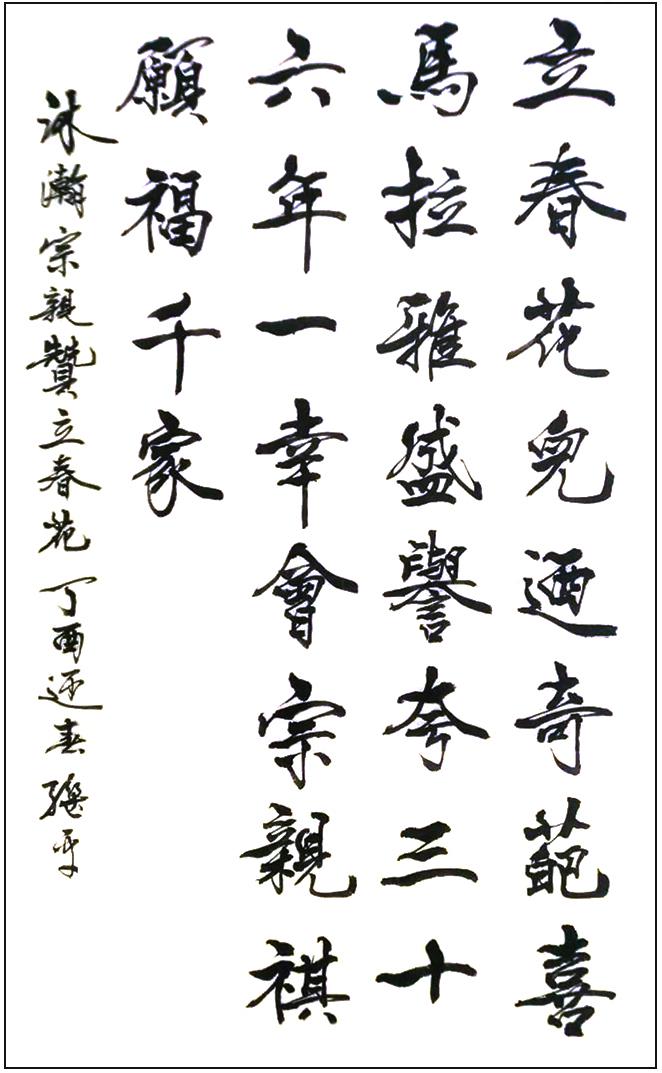 立春花兒迺奇葩喜
馬拉雅盛譽夸三十
六年一幸會宗親祺
願福千家
沐瀚宗親贊立春花 丁酉迎春 平